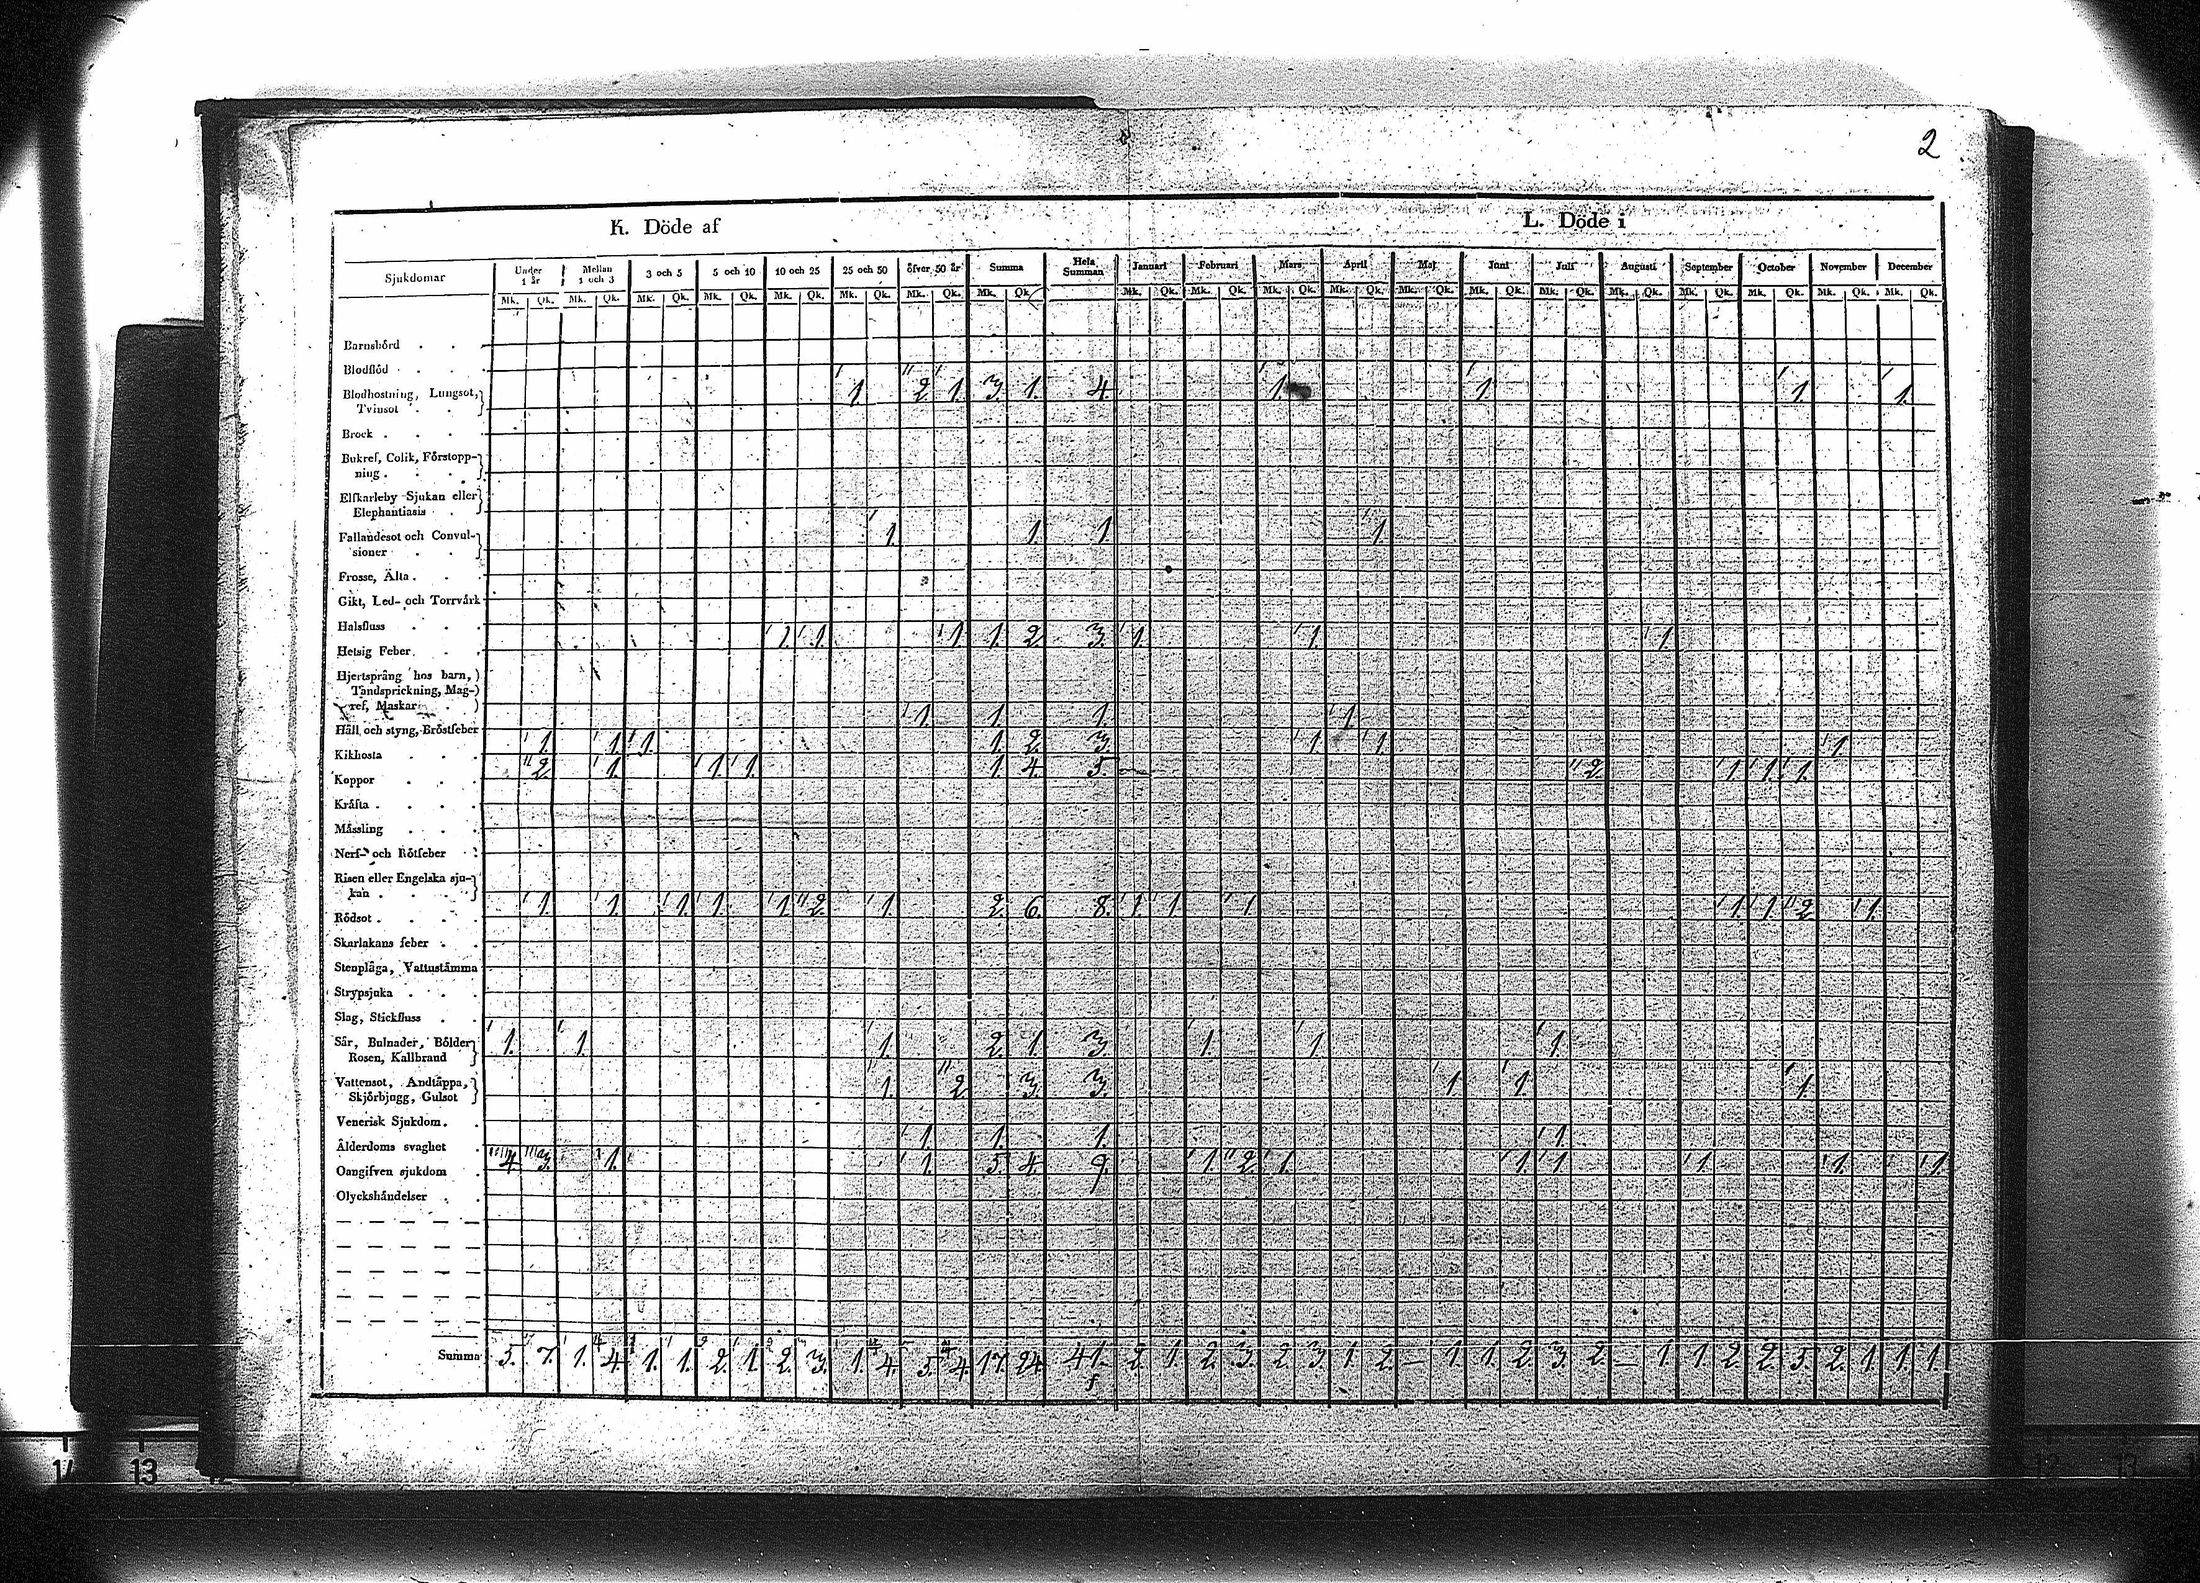 2
K. Döde af
L. Döde i
Sjukdomar Under 1 år Mellan 1 och 3 3 och 5 5 och 10 10 och 25 25 och 50 öfver 50 år Summa Hela Summan Januari Februari Mars April Maj Juni Juli Augusti September October November December
Mk. Qk. Mk. Qk. Mk. Qk. Mk. Qk. Mk. Qk. Mk. Qk. Mk. Qk. Mk. Qk. Mk. Qk. Mk. Qk. Mk. Qk. Mk. Qk. Mk. Qk. Mk. Qk. Mk. Qk. Mk. Qk. Mk. Qk. Mk. Qk. Mk. Qk. Mk. Qk.
Barnsbörd
Blodflöd
Blodhostning, Lungsot, 1. 2. 1. 3. 1. 4. 1. 1. 1. 1.
Tvinsot
Brock
Bukref, Colik, Förstopp-
ning
Elfkarleby Sjukan eller
Elephantiasis
Fallandesot och Convul- 1. 1. 1. 1.
sioner
Frosse, Älta
Gikt, Led- och Torrvärk
Halsfluss
Hetsig Feber 1. 1. 1. 1. 2. 3. 1. 1. 1.
Hjertsprång hos barn,
Tandsprickning, Mag-
ref, Maskar
Håll och styng, Bröstfeber 1. 1. 1. 1.
Kikhosta 1. 1. 1. 1. 2. 3. 1. 1. 1.
Koppor 2. 1. 1. 1. 1. 4. 5. 2. 1. 1. 1.
Kräfta
Måssling
Nerf- och Rötfeber
Risen eller Engelska sju-
kan
Rödsot 1. 1. 1. 1. 1. 2. 1. 2. 6. 8. 1. 1. 1. 1. 1. 2. 1.
Skarlakans feber
Stenplåga, Vattustämma
Strypsjuka
Slag, Stickfluss
Sår, Bulnader, Bölder 1. 1. 1. 2. 1. 3. 1. 1. 1.
Rosen, Kallbrand
Vattensot, Andtäppa, 1. 2. 3. 3. 1. 1. 1.
Skjörbjugg, Gulsot
Venerisk Sjukdom.
Ålderdoms svaghet 1. 1. 1. 1.
Oangifven sjukdom 4. 3. 1. 1. 5. 4. 9. 1. 2. 1. 1. 1. 1. 1. 1.
Olyckshändelser
Summa 5. 7. 1. 4. 1. 1. 2. 1. 2. 3. 1. 4. 5. 4. 17. 24. 41. 2. 1. 2. 3. 2. 3. 1. 2. — 1. 1. 2. 3. 2. — 1. 1. 2. 2. 5. 2. 1. 1. 1.
13